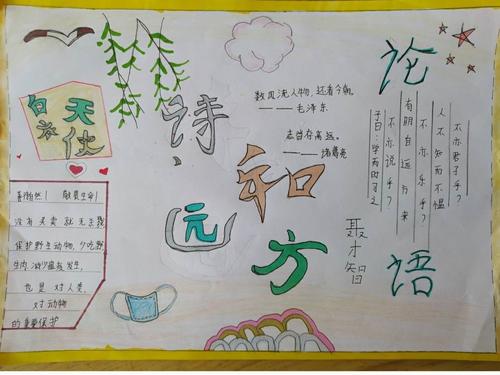 白衣
天使
善待自然！敬畏生命！
没有买卖就无杀戮
保护野生动物，少吃野
生肉，减少瘟疫发生，
也是对人类，
对动物
的重要保护
诗
和
远
方
数风流人物，还看今朝。
———毛泽东
志当存高远。
———诸葛亮
论
语
不亦君子乎？
人不知而不愠
不亦乐乎？
有朋自远方来
不亦说乎？
子曰：学而时习之
聂才智